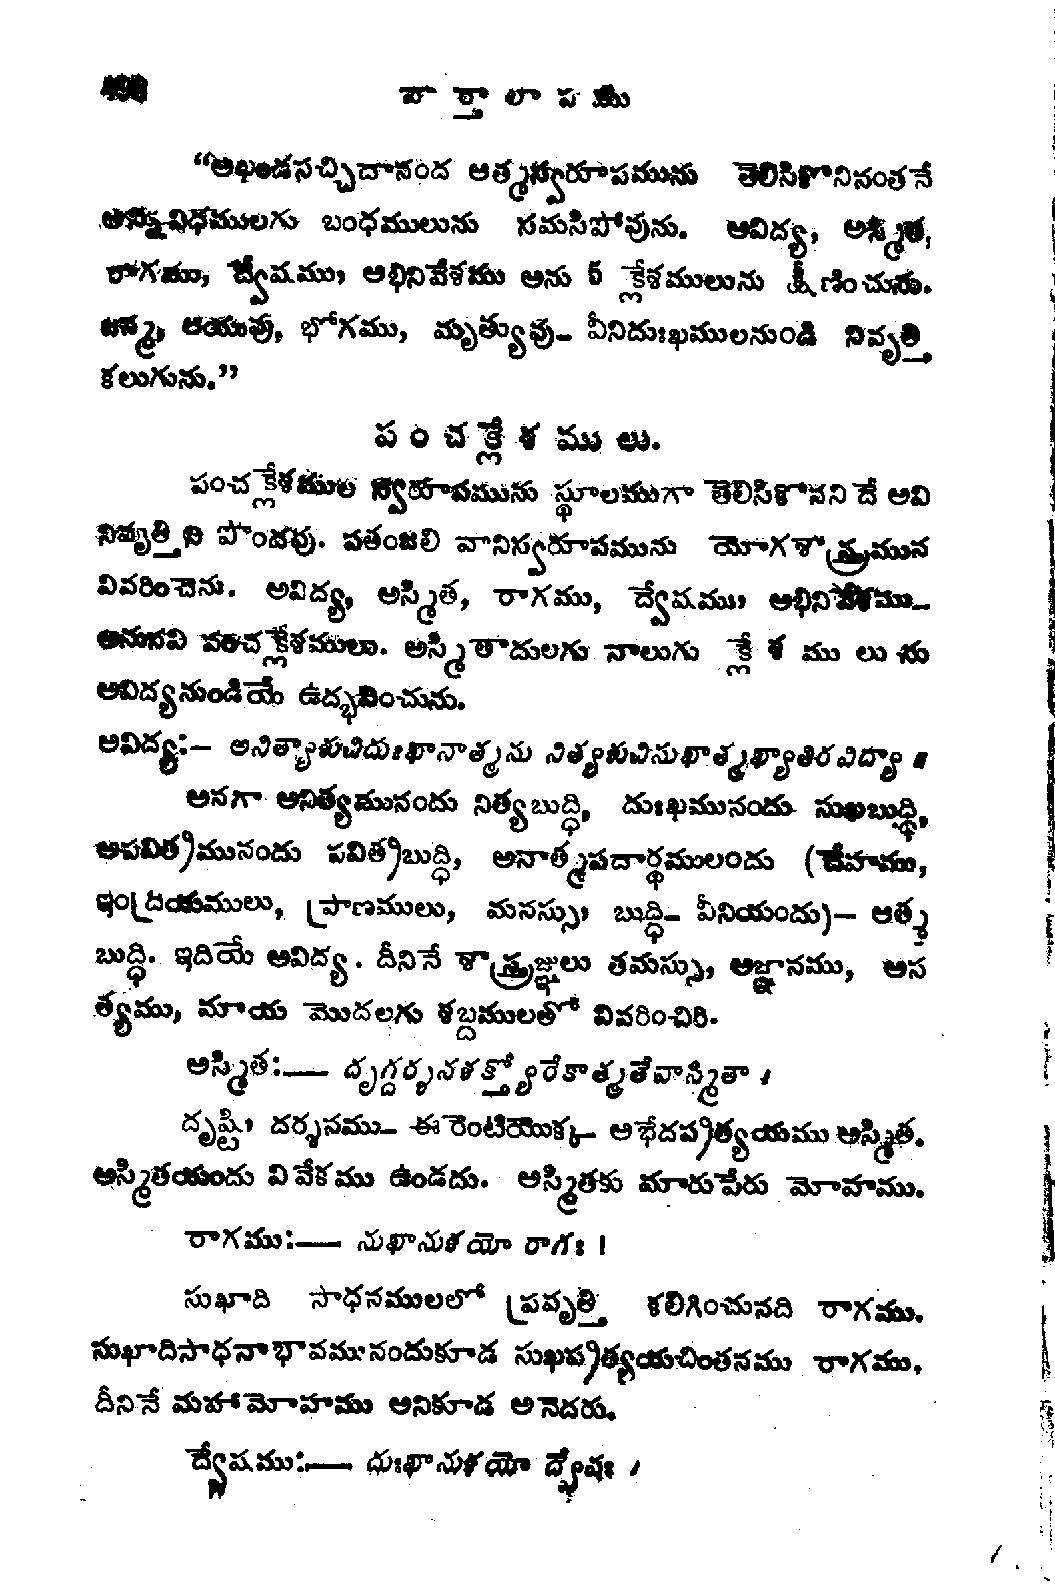 వార్తాలాపము
“అఖండసచ్చిదానంద ఆత్మస్వరూపమును తెలిసికొనినంతనే
అనేకవిధములగు బంధములును సమసిపోవును. అవిద్య, అస్మిత,
రాగము, ద్వేషము, అభినివేశము అను 5 క్లేశములును క్షీణించును.
జన్మ, ఆయువు, భోగము, మృత్యువు- వీనిదుఃఖములనుండి నివృత్తి
కలుగును.”
పంచక్లేశములు.
పంచక్లేశముల స్వరూపమును స్థూలముగా తెలిసికొననిదే అవి
నివృత్తిని పొందవు. పతంజలి వానిస్వరూపమును యోగశాస్త్రమున
వివరించెను. అవిద్య, అస్మిత, రాగము, ద్వేషము, అభినివేశము-
అనునవి పంచక్లేశములు. అస్మితాదులగు నాలుగు క్లేశములును
అవిద్యనుండియే ఉద్భవించును.
అవిద్య:- అనిత్యాశుచిదుఃఖానాత్మను నిత్యశుచిసుఖాత్మఖ్యాతిరవిద్యా ॥
అనగా అనిత్యమునందు నిత్యబుద్ధి, దుఃఖమునందు సుఖబుద్ధి,
అపవిత్రమునందు పవిత్రబుద్ధి, అనాత్మపదార్థములందు (దేహము,
ఇంద్రియములు, ప్రాణములు, మనస్సు, బుద్ధి- వీనియందు)- ఆత్మ
బుద్ధి. ఇదియే అవిద్య. దీనినే శాస్త్రజ్ఞులు తమస్సు, అజ్ఞానము, అస
త్యము, మాయ మొదలగు శబ్దములతో వివరించిరి.
అస్మిత:— దృగ్దర్శనశక్త్యోరేకాత్మతేవాస్మితా ।
దృష్టి, దర్శనము- ఈ రెంటియొక్క- అభేదప్రత్యయము అస్మిత.
అస్మితయందు వివేకము ఉండదు. అస్మితకు మారుపేరు మోహము.
రాగము:— సుఖానుశయో రాగః ।
సుఖాది సాధనములలో ప్రవృత్తి కలిగించునది రాగము.
సుఖాదిసాధనాభావమునందుకూడ సుఖప్రత్యయచింతనము రాగము.
దీనినే మహామోహము అనికూడ అనెదరు.
ద్వేషము:— దుఃఖానుశయో ద్వేషః ।